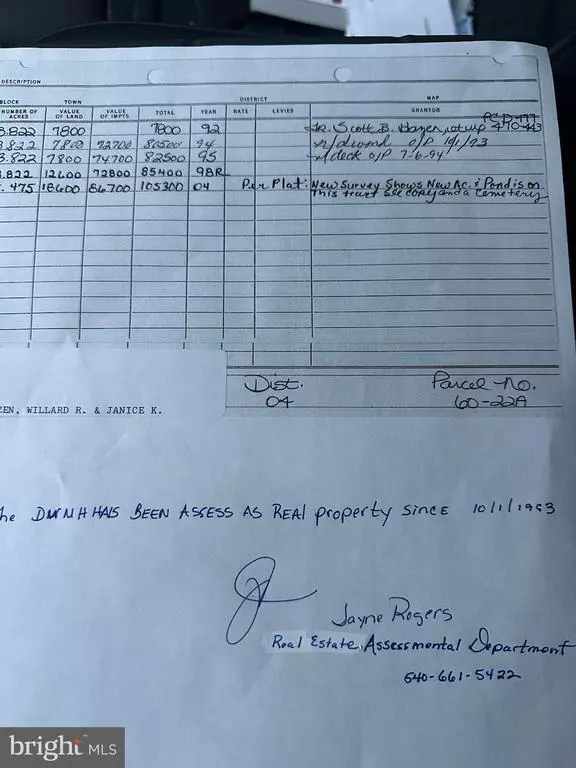 DESCRIPTION
BLOCK TOWN DISTRICT MAP
NUMBER OF ACRES VALUE OF LAND VALUE OF IMPTS TOTAL YEAR RATE LEVIES GRANTOR
3.822 7800 7800 92 Scott B. 470-443
3.822 7800 72700 80500 94 O/P 10/1/93
3.822 7800 74700 82500 95 deck O/P 7-6-94
.822 12600 72800 85400 98R
.475 18600 86700 105300 04 Per Plat: New Survey Shows New Ac. & Pond is on
This tract see copy and a Cemetery
Dist. Parcel No.
04 60-22A
ZEN, WILLARD R. & JANICE K.
he DWMH HAS BEEN ASSESS AS REAl property since 10/1/1993
Jayne Rogers
Real Estate Assessmental Department
540-661-5422
bright MLS